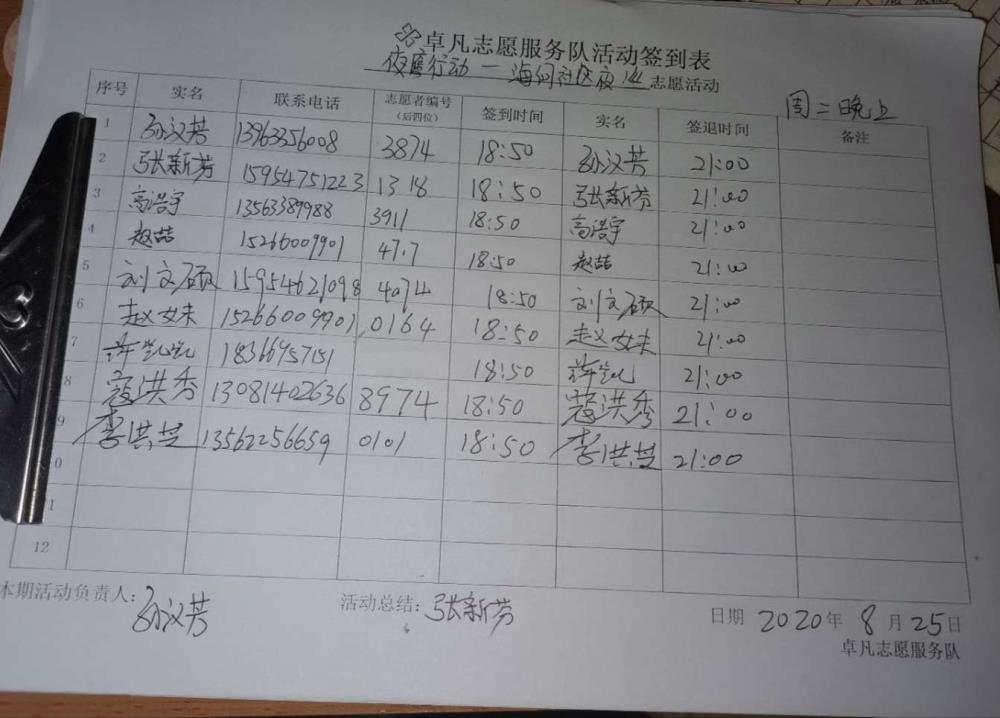 卓凡志愿服务队活动签到表
夜鹰行动一海阔社区夜巡志愿活动
周二晚上
序号 实名 联系电话 志愿者编号(后四位) 签到时间 实名 签退时间 备注
1 孙汉芳 13963356008 3874 18:50 孙汉芳 21:00
2 张新芳 15954751223 1318 18:50 张新芳 21:00
3 高浩宇 13563389988 3911 18:50 高浩宇 21:00
4 赵喆 15266009901 47.7 18:50 赵喆 21:00
5 刘文硕 15954621098 4074 18:50 刘文硕 21:00
6 赵女未 15266009901 0164 18:50 赵女未 21:00
7 18366957151 18:50 21:00
8 寇洪秀 13081402636 8974 18:50 寇洪秀 21:00
9 李洪芝 13562256659 0101 18:50 李洪芝 21:00
0
1
12
本期活动负责人：孙汉芳 活动总结：张新芳 日期 2020年8月25日
卓凡志愿服务队